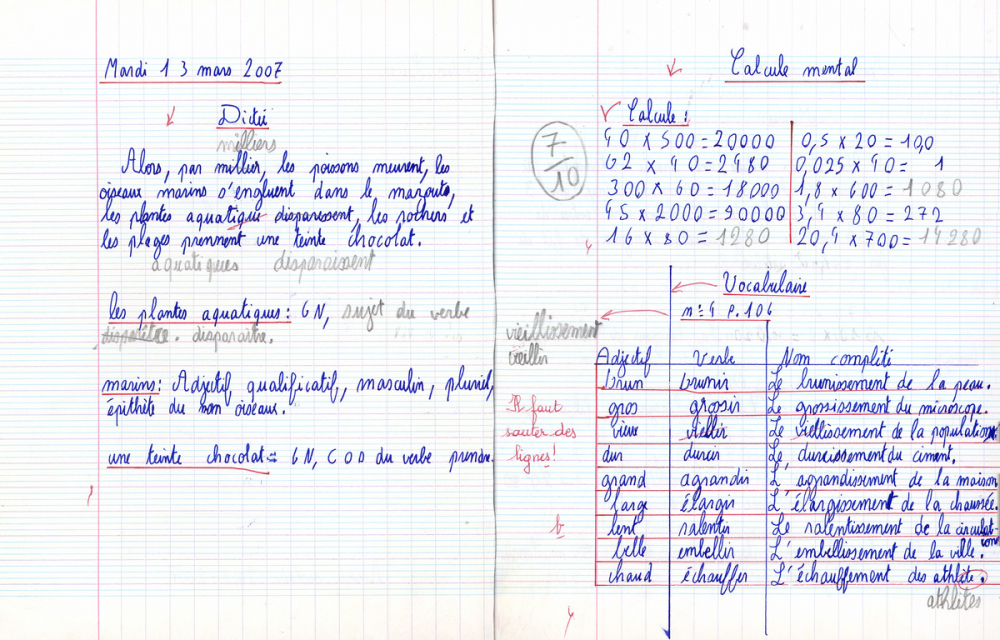 Mardi 13 mars 2007
Dictée
milliers
Alors, par millier, les poissons meurent, les
oiseaux marins s'engluent dans le mazoute,
les plantes aquatique disparessent, les rochers et
les plages prennent une teinte chocolat.
aquatiques disparaissent
les plantes aquatiques : GN, sujet du verbe
disparaître.
marins : Adjectif qualificatif, masculin, pluriel,
épithète du nom oiseaux.
une teinte chocolat : GN, COD du verbe prendre.
Calcule mental
Calcule :
7/10
40 x 500 = 20000
62 x 40 = 2480
300 x 60 = 18000
45 x 2000 = 90000
16 x 80 = 1280
0,5 x 20 = 10,0
0,025 x 40 = 1
1,8 x 600 = 1080
3,4 x 80 = 272
20,4 x 700 = 14280
Vocabulaire
n°4 p.106
vieillissement
vieillir
Il faut
sauter des
lignes !
Adjectif Verbe Nom complété
brun brunir Le brunissement de la peau.
gros grossir Le grossissement du microscope.
vieux viellir Le viellissement de la population.
dur durcir Le durcissement du ciment.
grand agrandir L'agrandissement de la maison
large élargir L'élargissement de la chaussée.
lent ralentir Le ralentissement de la circulation
belle embellir L'embellissement de la ville.
chaud échauffer L'échauffement des athlète.
athlètes